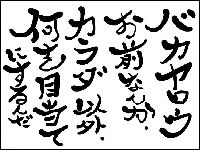 バカヤロウ
お前なんか、
カラダ以外、
何を目当て
にするんだ